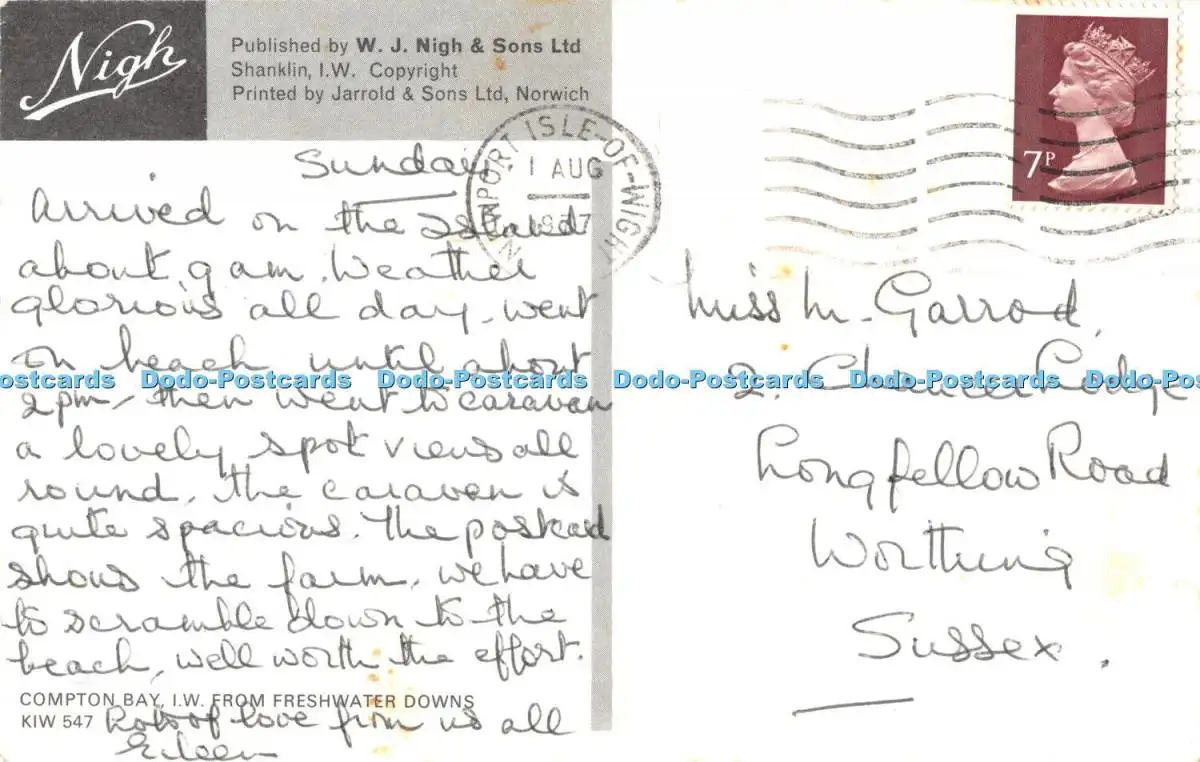 Nigh
Published by W. J. Nigh & Sons Ltd
Shanklin, I.W. Copyright
Printed by Jarrold & Sons Ltd, Norwich
NEWPORT ISLE-OF-WIGHT
1 AUG
7P
Sunday
Arrived on the Island
about 9 am. Weather
glorious all day, went
on beach until about
2 pm, then went to caravan
a lovely spot views all
round. The caravan is
quite spacious. The postcard
shows the farm, we have
to scramble down to the
beach, well worth the effort.
COMPTON BAY, I.W. FROM FRESHWATER DOWNS
KIW 547
Lots of love from us all
Eileen
Miss M. Garrod,
2. Chaucer Lodge
Longfellow Road
Worthing
Sussex.
Dodo-Postcards Dodo-Postcards Dodo-Postcards Dodo-Postcards Dodo-Postcards